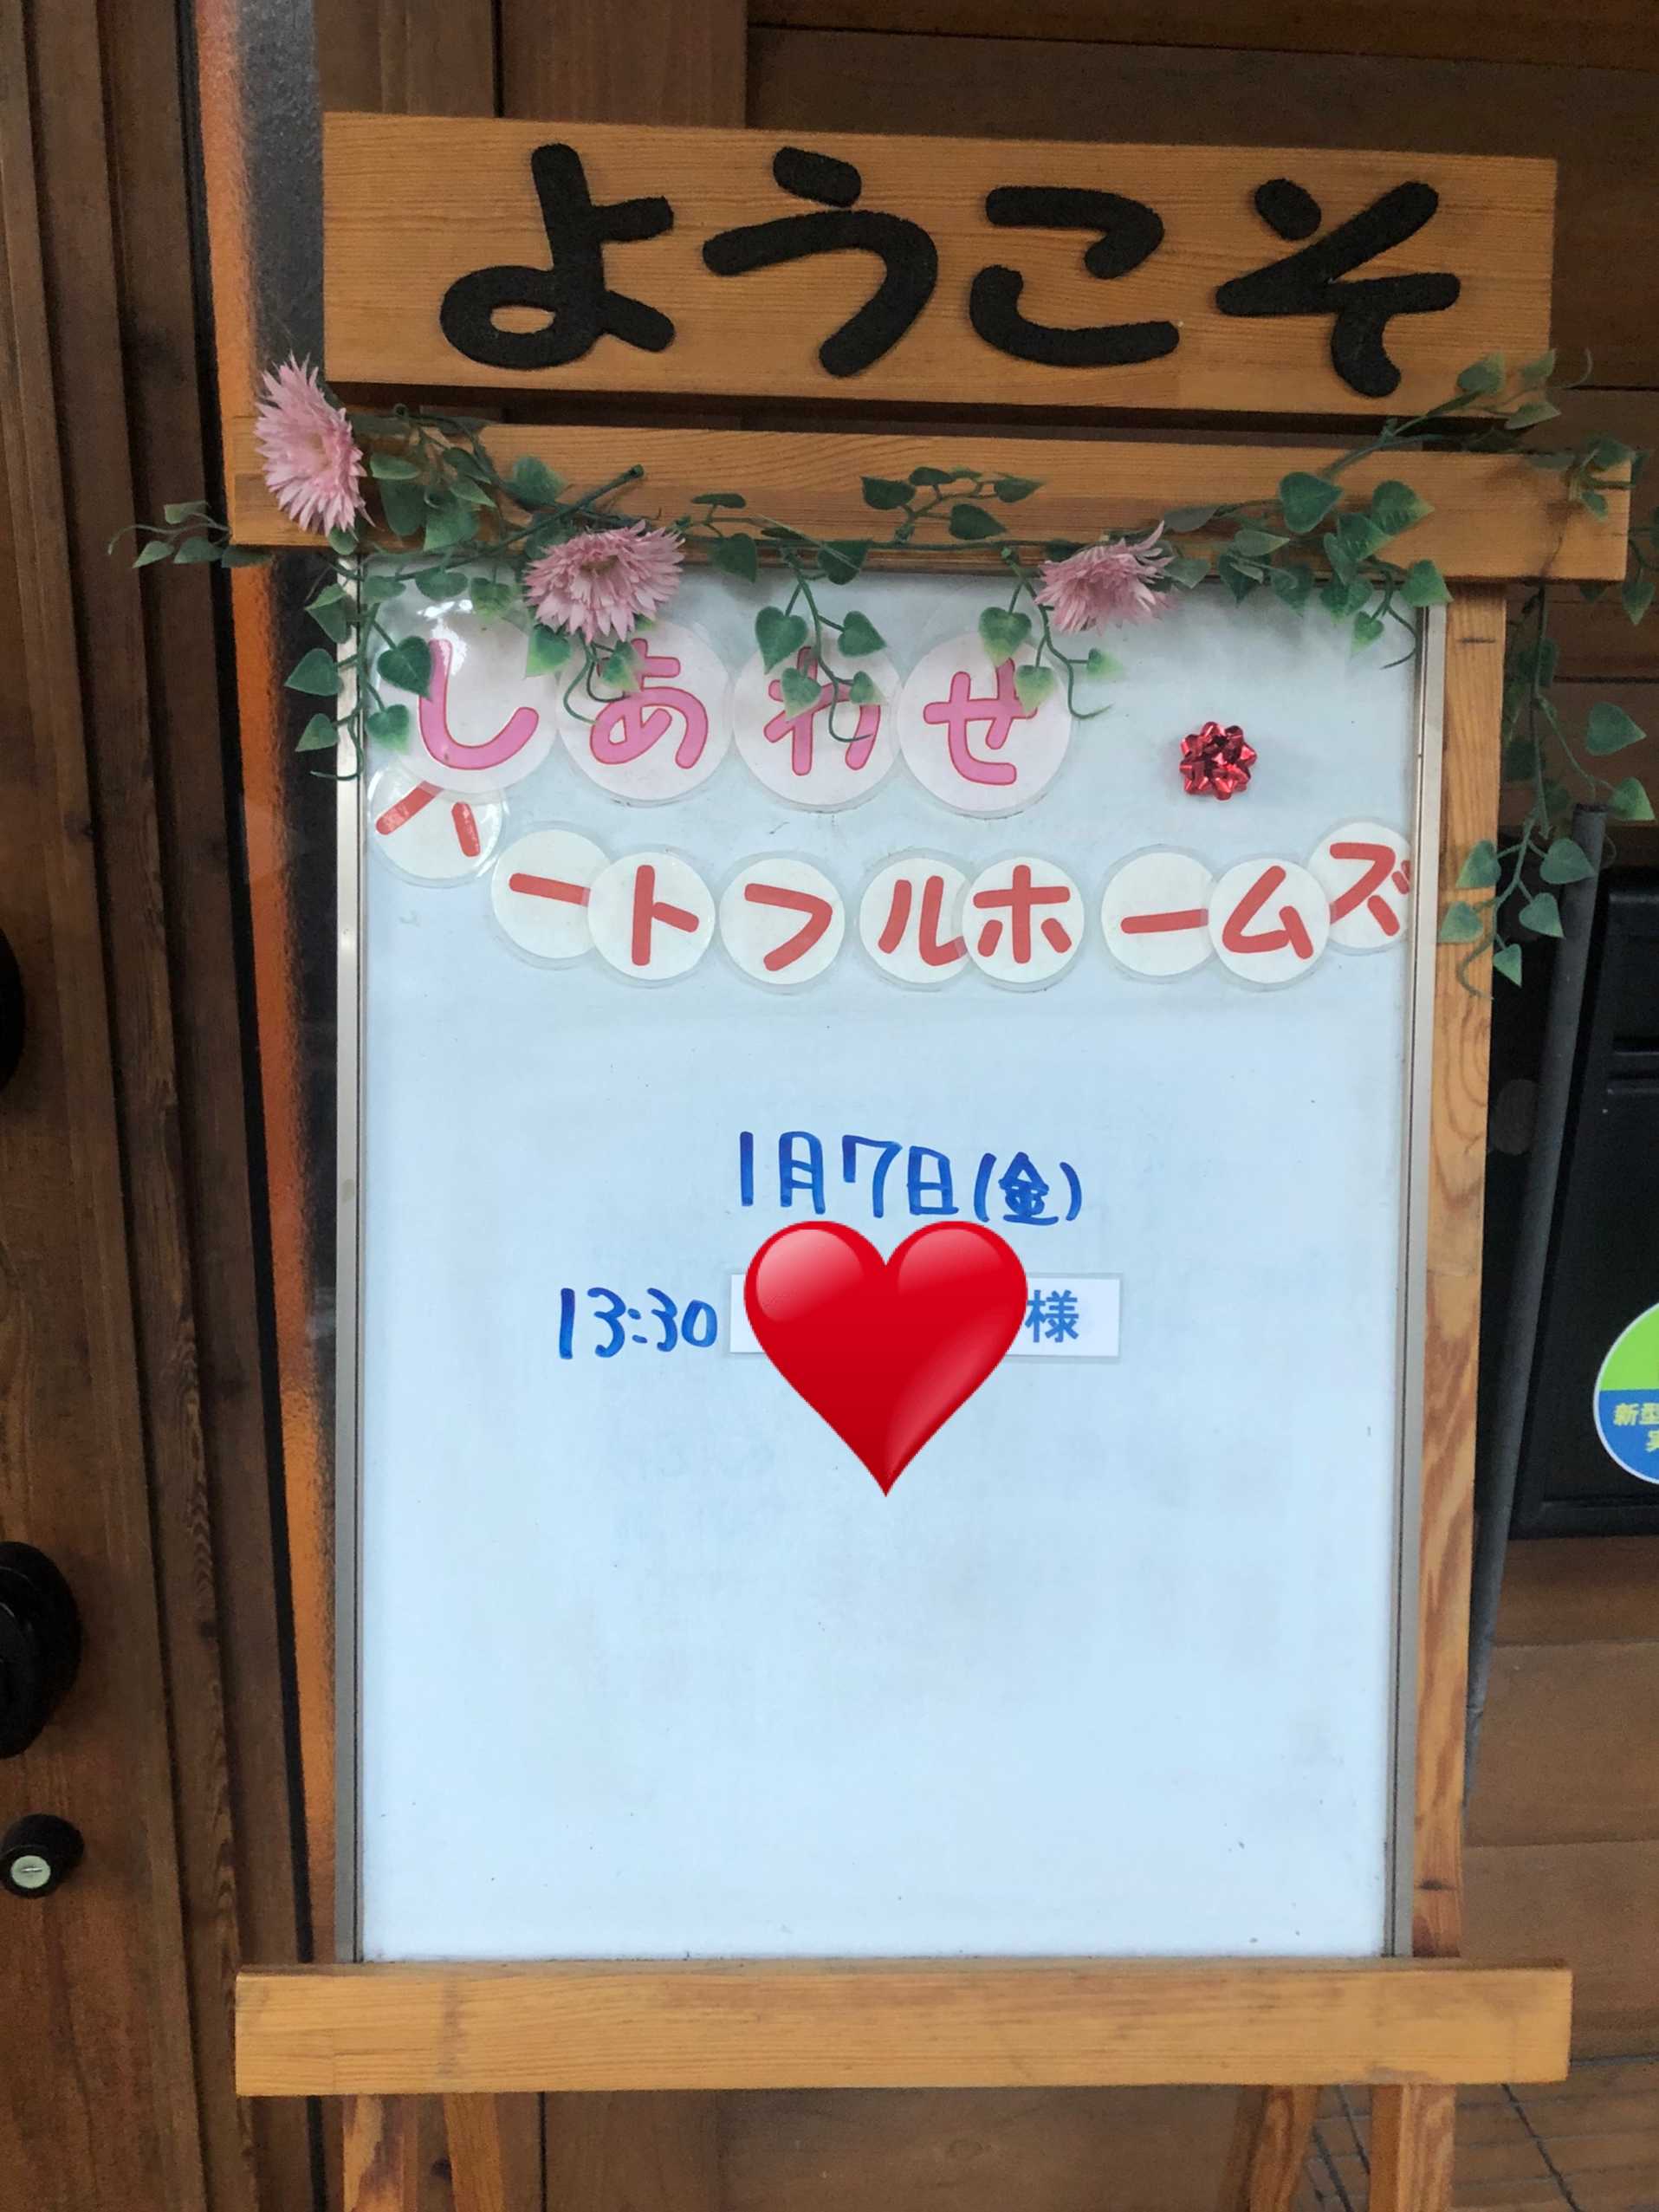 ようこそ
しあわせ
ハートフルホームズ
1月7日(金)
13:30 様
新型